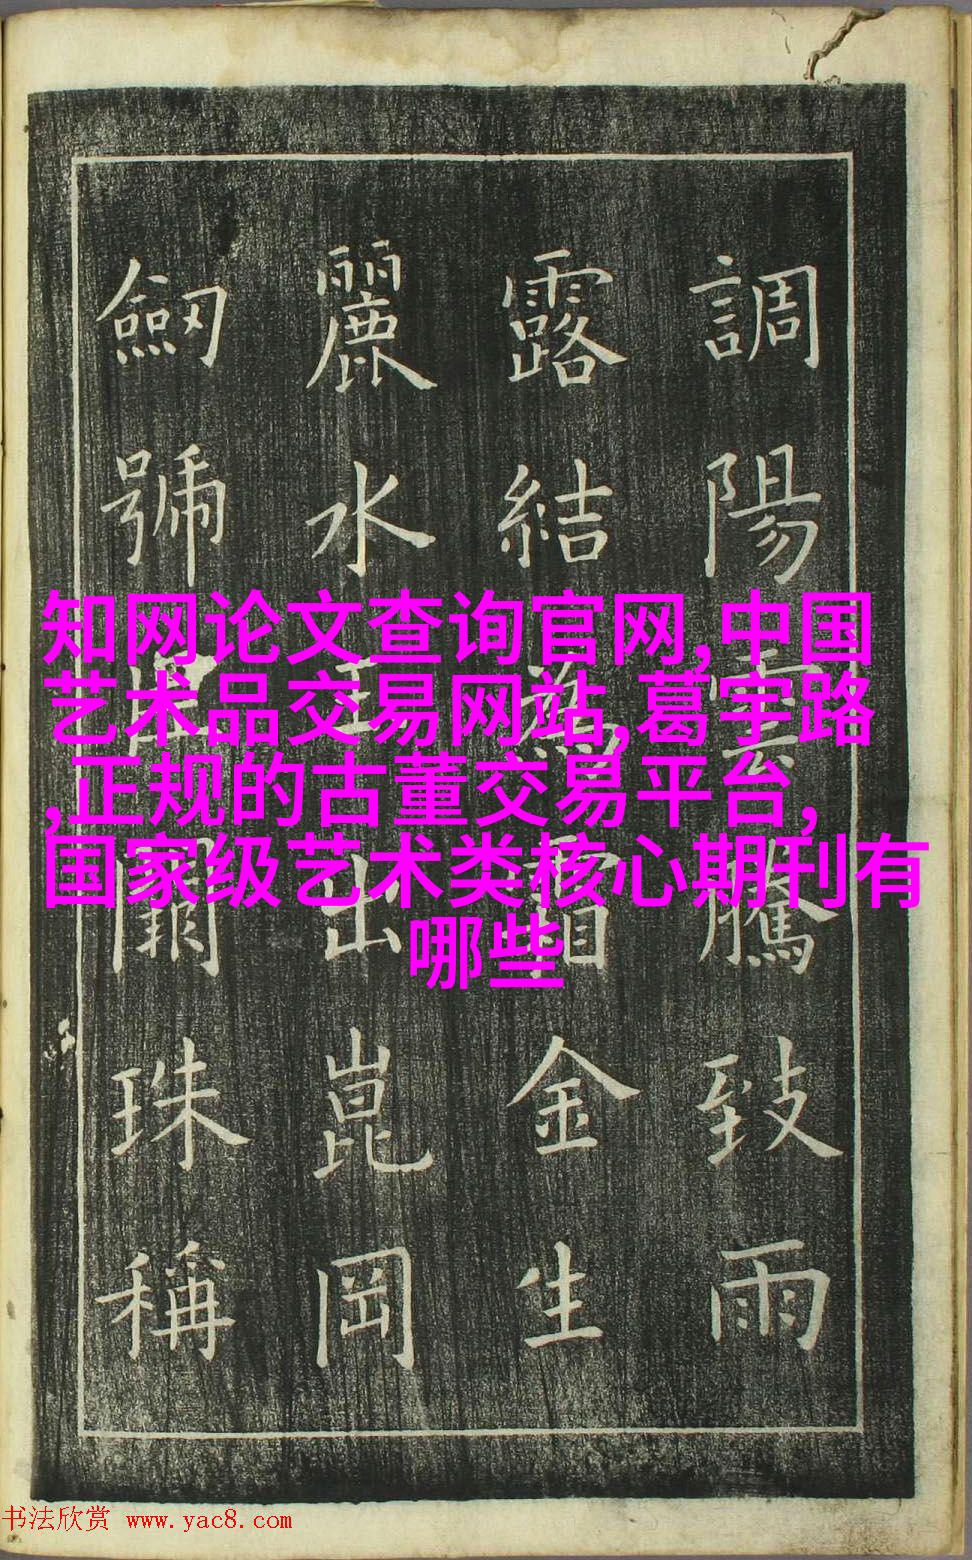 調陽雲騰致雨
露結為霜金生
麗水玉出崑岡
劒號巨闕珠稱
知网论文查询官网,中国
艺术品交易网站,葛宇路
,正规的古董交易平台,
国家级艺术类核心期刊有
哪些
书法欣赏 www.yac8.com